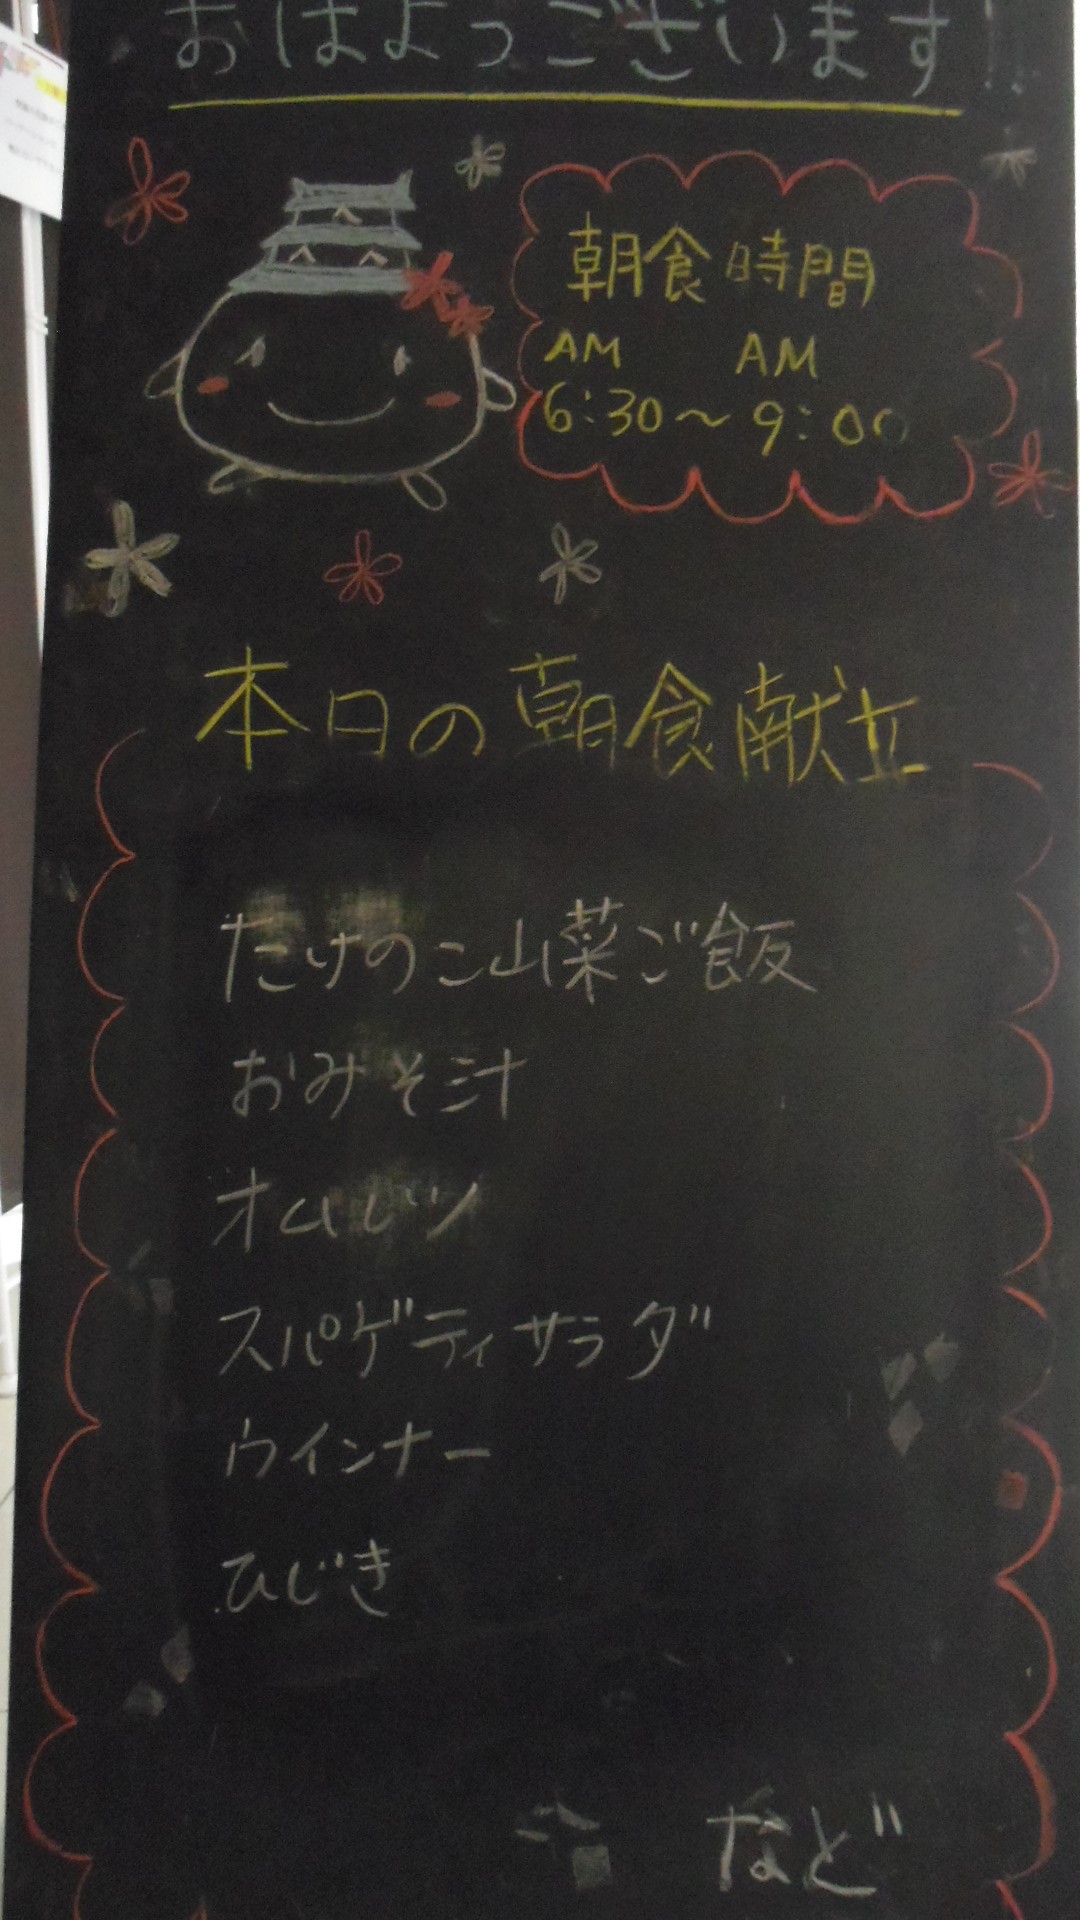 おはようございます!!
朝食時間
AM AM
6:30～9:00
本日の朝食献立
たけのこ山菜ご飯
おみそ汁
オムレツ
スパゲティサラダ
ウインナー
ひじき
など